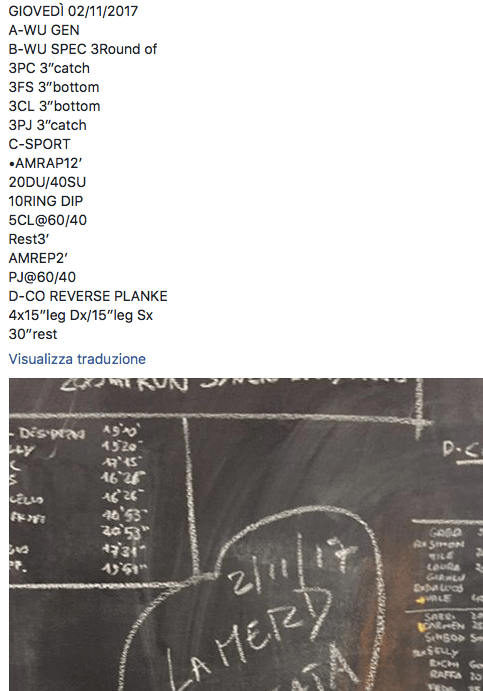 GIOVEDÌ 02/11/2017
A-WU GEN
B-WU SPEC 3Round of
3PC 3”catch
3FS 3”bottom
3CL 3”bottom
3PJ 3”catch
C-SPORT
•AMRAP12’
20DU/40SU
10RING DIP
5CL@60/40
Rest3’
AMREP2’
PJ@60/40
D-CO REVERSE PLANKE
4x15”leg Dx/15”leg Sx
30”rest
Visualizza traduzione
RUN
19'10"
19'20"
17'15"
16'28"
16'26"
20'53"
17'31"
D-C
2/11/17
LA MERD
GABO
SIMON
LAURA
VALE
SABRI
CARMEN
SIMBAD
SELLY
RICHI
RAFFA